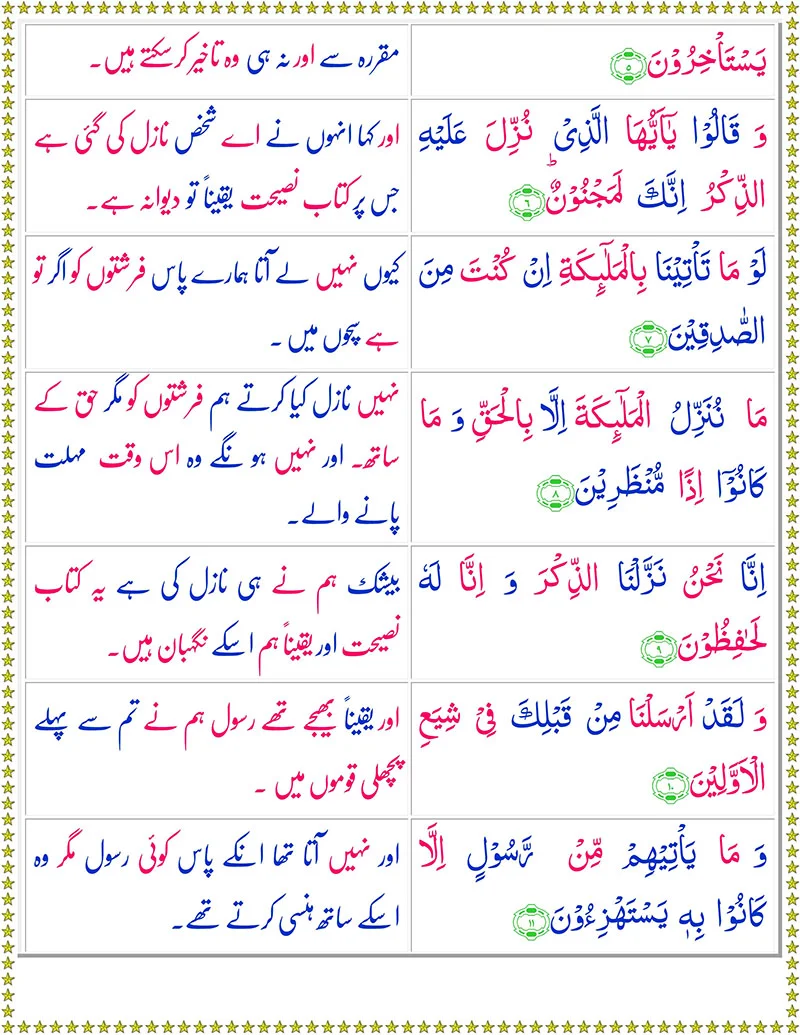 يَسْتَاْخِرُوْنَ ۝٥
مقررہ سے اور نہ ہی وہ تاخیر کرسکتے ہیں۔
وَ قَالُوْا يٰۤاَيُّهَا الَّذِيْ نُزِّلَ عَلَيْهِ
الذِّكْرُ اِنَّكَ لَمَجْنُوْنٌؕ ۝٦
اور کہا انہوں نے اے شخص نازل کی گئی ہے
جس پر کتاب نصیحت یقیناً تو دیوانہ ہے۔
لَوْ مَا تَاْتِيْنَا بِالْمَلٰٓىِٕكَةِ اِنْ كُنْتَ مِنَ
الصّٰدِقِيْنَ ۝٧
کیوں نہیں لے آتا ہمارے پاس فرشتوں کو اگر تو
ہے سچوں میں ۔
مَا نُنَزِّلُ الْمَلٰٓىِٕكَةَ اِلَّا بِالْحَقِّ وَ مَا
كَانُوْۤا اِذًا مُّنْظَرِيْنَ ۝٨
نہیں نازل کیا کرتے ہم فرشتوں کو مگر حق کے
ساتھ۔ اور نہیں ہونگے وہ اس وقت مہلت
پانے والے۔
اِنَّا نَحْنُ نَزَّلْنَا الذِّكْرَ وَ اِنَّا لَهٗ
لَحٰفِظُوْنَ ۝٩
بیشک ہم نے ہی نازل کی ہے یہ کتاب
نصیحت اور یقیناً ہم اسکے نگہبان ہیں۔
وَ لَقَدْ اَرْسَلْنَا مِنْ قَبْلِكَ فِيْ شِيَعِ
الْاَوَّلِيْنَ ۝١٠
اور یقیناً بھیجے تھے رسول ہم نے تم سے پہلے
پچھلی قوموں میں ۔
وَ مَا يَاْتِيْهِمْ مِّنْ رَّسُوْلٍ اِلَّا
كَانُوْا بِهٖ يَسْتَهْزِءُوْنَ ۝١١
اور نہیں آتا تھا انکے پاس کوئی رسول مگر وہ
اسکے ساتھ ہنسی کرتے تھے۔